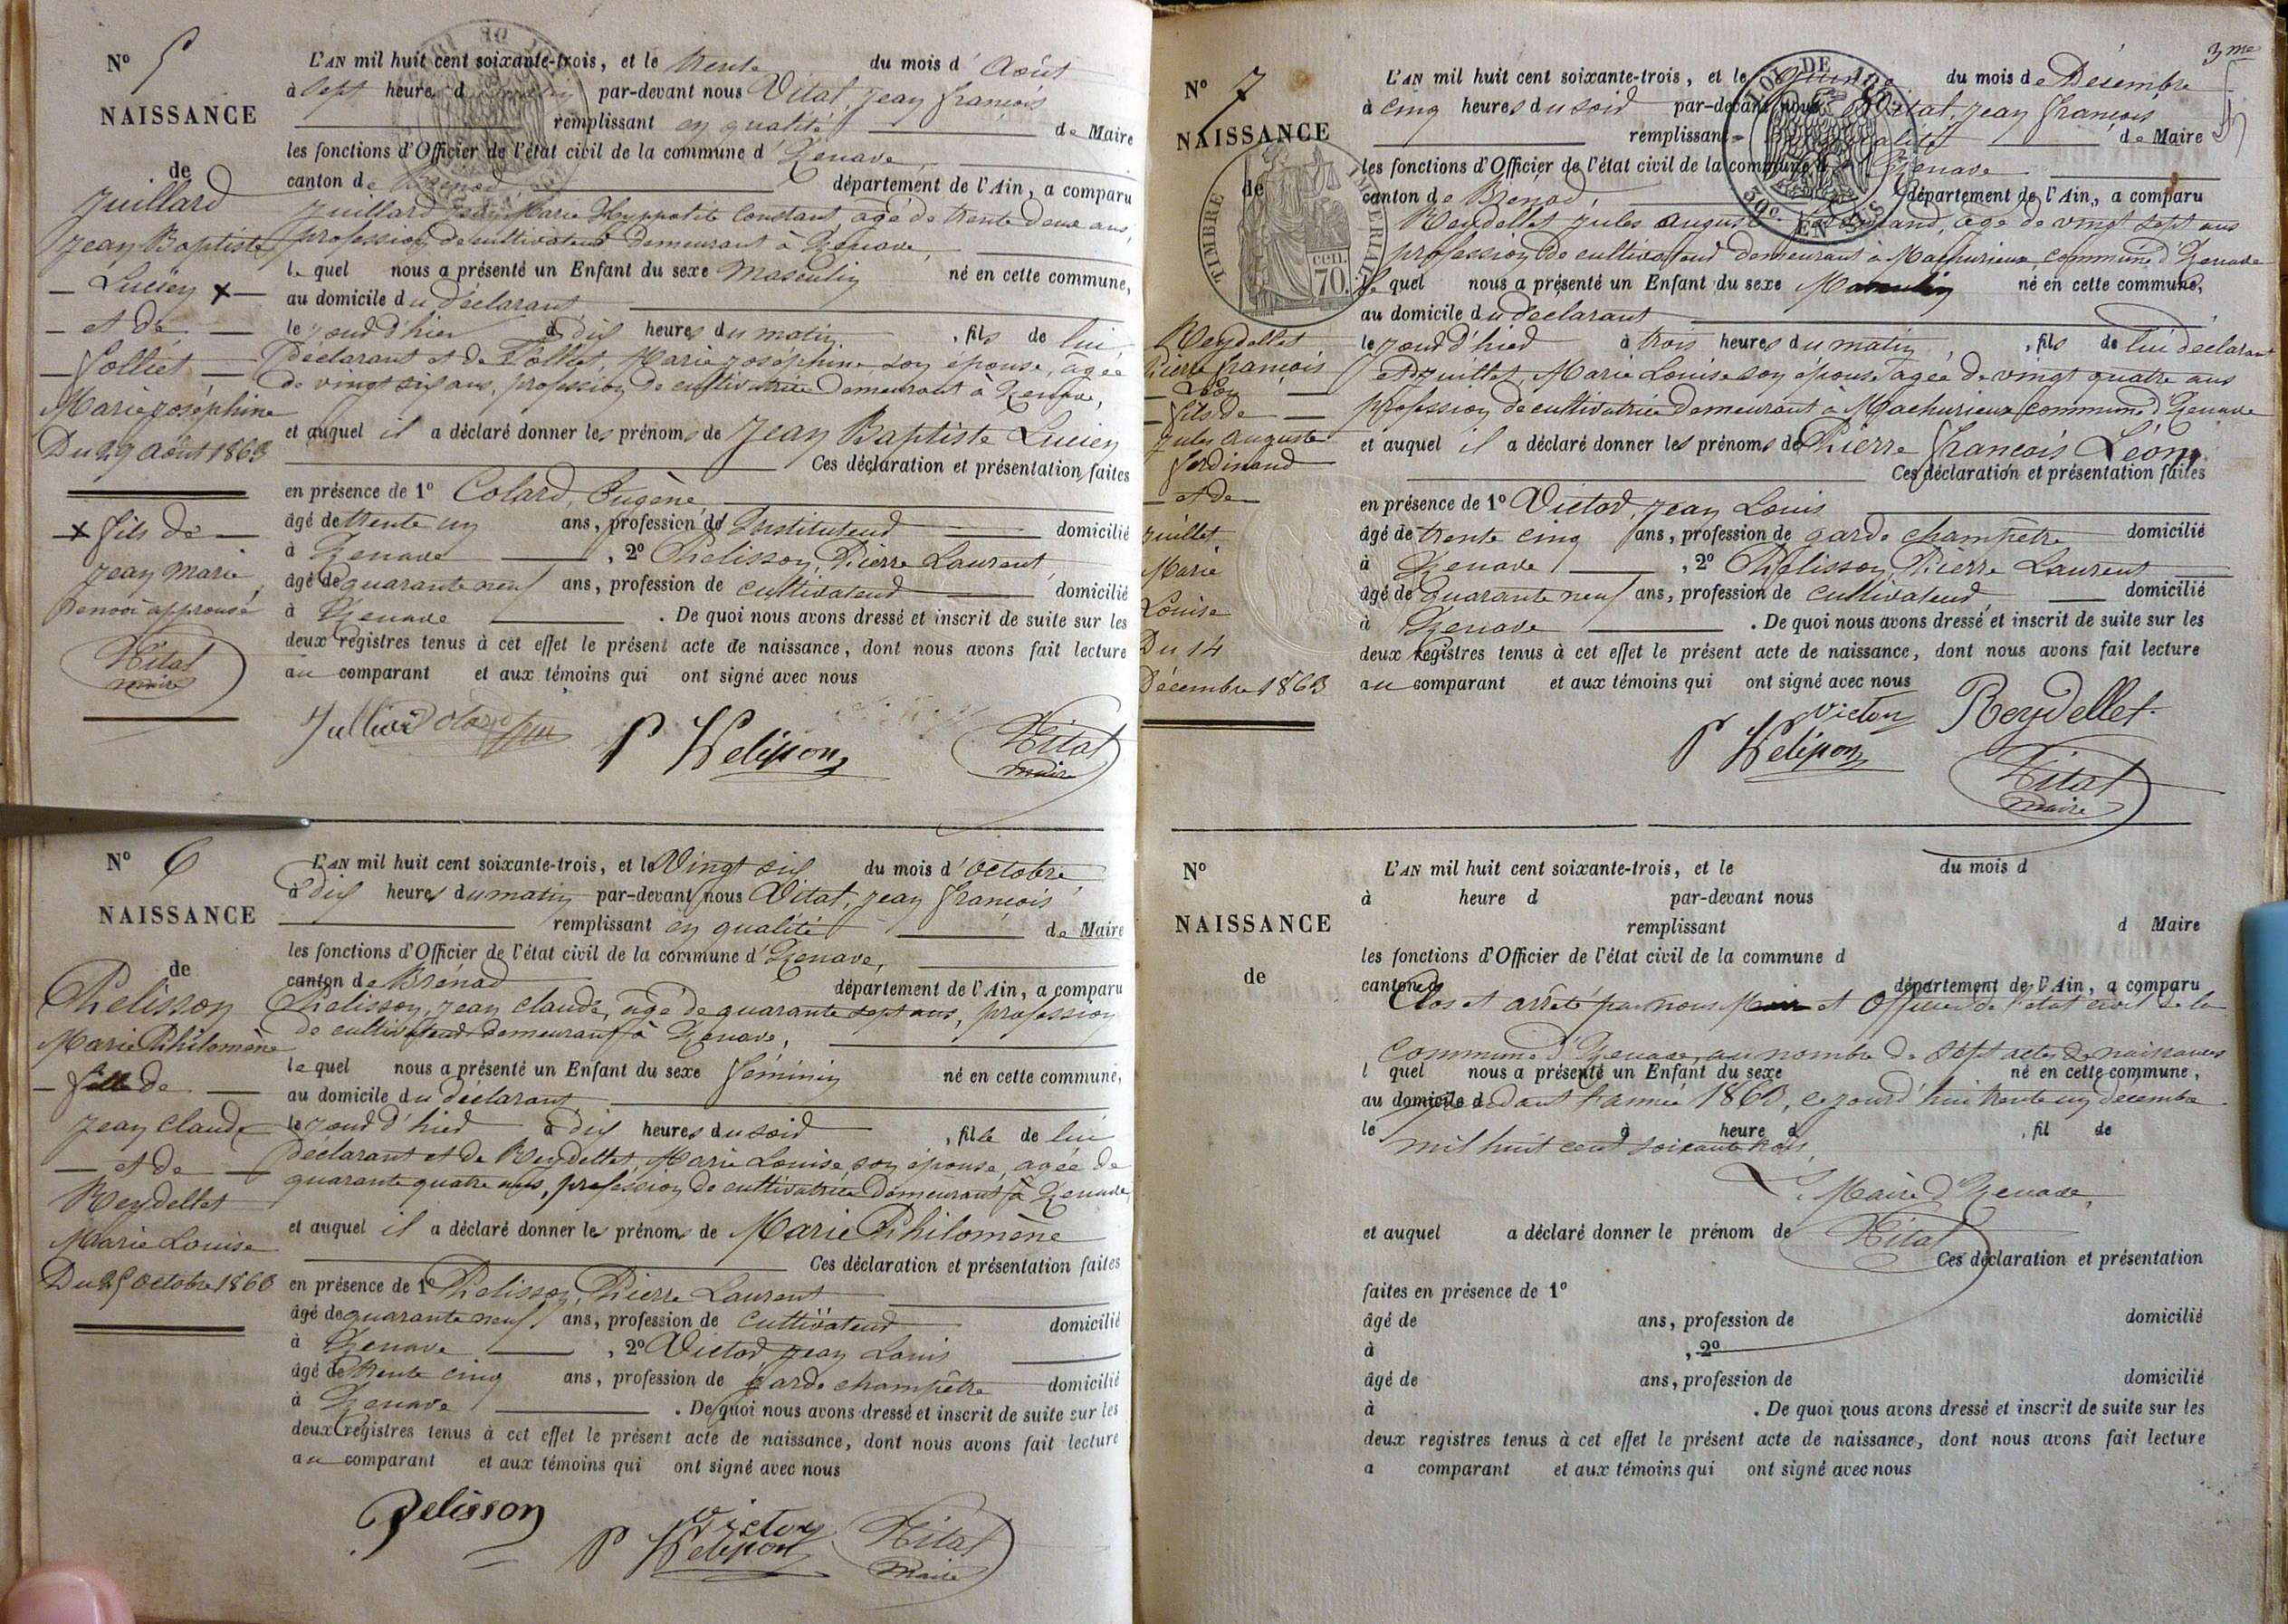 N° 5
NAISSANCE
de
Juillard
Jean Baptiste
— Lucien × —
— et de —
— Jolliet —
Marie Joséphine
Du 29 Août 1863
× fils de —
Jean Marie
Renvoi approuvé
Vital
maire
L'AN mil huit cent soixante-trois, et le trente du mois d'Août
à sept heures du matin par-devant nous Vital, Jean François
remplissant en qualité de Maire
les fonctions d'Officier de l'état civil de la commune d'Izenave,
canton de Brénod, département de l'Ain, a comparu
Juillard Jean Marie Hyppolite Constant, âgé de trente deux ans,
profession de cultivateur demeurant à Izenave,
lequel nous a présenté un Enfant du sexe masculin né en cette commune,
au domicile du déclarant
le jour d'hier à dix heures du matin, fils de lui
déclarant et de Jolliet, Marie Joséphine son épouse, âgée
de vingt six ans, profession de cultivatrice demeurant à Izenave,
et auquel il a déclaré donner les prénoms de Jean Baptiste Lucien
Ces déclaration et présentation faites
en présence de 1° Colard, Eugène
âgé de trente un ans, profession d'Instituteur domicilié
à Izenave, 2° Pelisson, Pierre Laurent
âgé de quarante neuf ans, profession de cultivateur domicilié
à Izenave. De quoi nous avons dressé et inscrit de suite sur les
deux registres tenus à cet effet le présent acte de naissance, dont nous avons fait lecture
au comparant et aux témoins qui ont signé avec nous
Julliard Colard
P Pelisson
Vital
maire
N° 6
NAISSANCE
de
Pelisson
Marie Philomène
— fille de —
Jean Claude
— et de —
Reydellet
Marie Louise
Du 25 Octobre 1863
L'AN mil huit cent soixante-trois, et le Vingt six du mois d'octobre
à dix heures du matin par-devant nous Vital, Jean François
remplissant en qualité de Maire
les fonctions d'Officier de l'état civil de la commune d'Izenave,
canton de Brénod département de l'Ain, a comparu
Pelisson, Jean Claude, âgé de quarante sept ans, profession
de cultivateur demeurant à Izenave,
lequel nous a présenté un Enfant du sexe féminin né en cette commune,
au domicile du déclarant
le jour d'hier à dix heures du soir, fille de lui
déclarant et de Reydellet, Marie Louise son épouse, âgée de
quarante quatre ans, profession de cultivatrice demeurant à Izenave,
et auquel il a déclaré donner les prénoms de Marie Philomène
Ces déclaration et présentation faites
en présence de 1° Pelisson, Pierre Laurent
âgé de quarante neuf ans, profession de cultivateur domicilié
à Izenave, 2° Victor, Jean Louis
âgé de trente cinq ans, profession de garde champêtre domicilié
à Izenave. De quoi nous avons dressé et inscrit de suite sur les
deux registres tenus à cet effet le présent acte de naissance, dont nous avons fait lecture
au comparant et aux témoins qui ont signé avec nous
Pelisson
Victor
P Pelisson
Vital
Maire
3me
N° 7
NAISSANCE
de
TIMBRE IMPERIAL
cen.
70.
LOI DE
50c. EN SUS
Reydellet
Pierre François
— Léon —
— fils de —
Jules Auguste
Ferdinand
— et de —
Juillet
Marie
Louise
Du 14
Décembre 1863
L'AN mil huit cent soixante-trois, et le quinze du mois de Décembre
à cinq heures du soir par-devant nous Vital, Jean François
remplissant en qualité de Maire
les fonctions d'Officier de l'état civil de la commune d'Izenave
canton de Brénod, département de l'Ain, a comparu
Reydellet Jules Auguste Ferdinand, âgé de vingt sept ans
profession de cultivateur demeurant à Machurieux commune d'Izenave
lequel nous a présenté un Enfant du sexe Masculin né en cette commune,
au domicile du déclarant
le jour d'hier à trois heures du matin, fils de lui déclarant
et Juillet, Marie Louise son épouse âgée de vingt quatre ans
profession de cultivatrice demeurant à Machurieux commune d'Izenave
et auquel il a déclaré donner les prénoms de Pierre François Léon
Ces déclaration et présentation faites
en présence de 1° Victor, Jean Louis
âgé de trente cinq ans, profession de garde champêtre domicilié
à Izenave, 2° Pelisson, Pierre Laurent
âgé de Quarante neuf ans, profession de cultivateur domicilié
à Izenave. De quoi nous avons dressé et inscrit de suite sur les
deux registres tenus à cet effet le présent acte de naissance, dont nous avons fait lecture
au comparant et aux témoins qui ont signé avec nous
Victor Reydellet
P Pelisson
Vital
maire
N°
NAISSANCE
de
L'AN mil huit cent soixante-trois, et le du mois d
à heure d par-devant nous
remplissant d Maire
les fonctions d'Officier de l'état civil de la commune d
canton d département de l'Ain, a comparu
Clos et arrêté par nous Maire et Officier de l'état civil de la
Commune d'Izenave, au nombre de sept actes de naissances
l quel nous a présenté un Enfant du sexe né en cette commune,
au domicile d
pendant l'année 1863, ce jourd'hui trente un décembre
le à heure d, fil de
mil huit cent soixante trois,
Le Maire d'Izenave,
et auquel a déclaré donner le prénom de
Vital
Ces déclaration et présentation
faites en présence de 1°
âgé de ans, profession de domicilié
à , 2°
âgé de ans, profession de domicilié
à . De quoi nous avons dressé et inscrit de suite sur les
deux registres tenus à cet effet le présent acte de naissance, dont nous avons fait lecture
a comparant et aux témoins qui ont signé avec nous